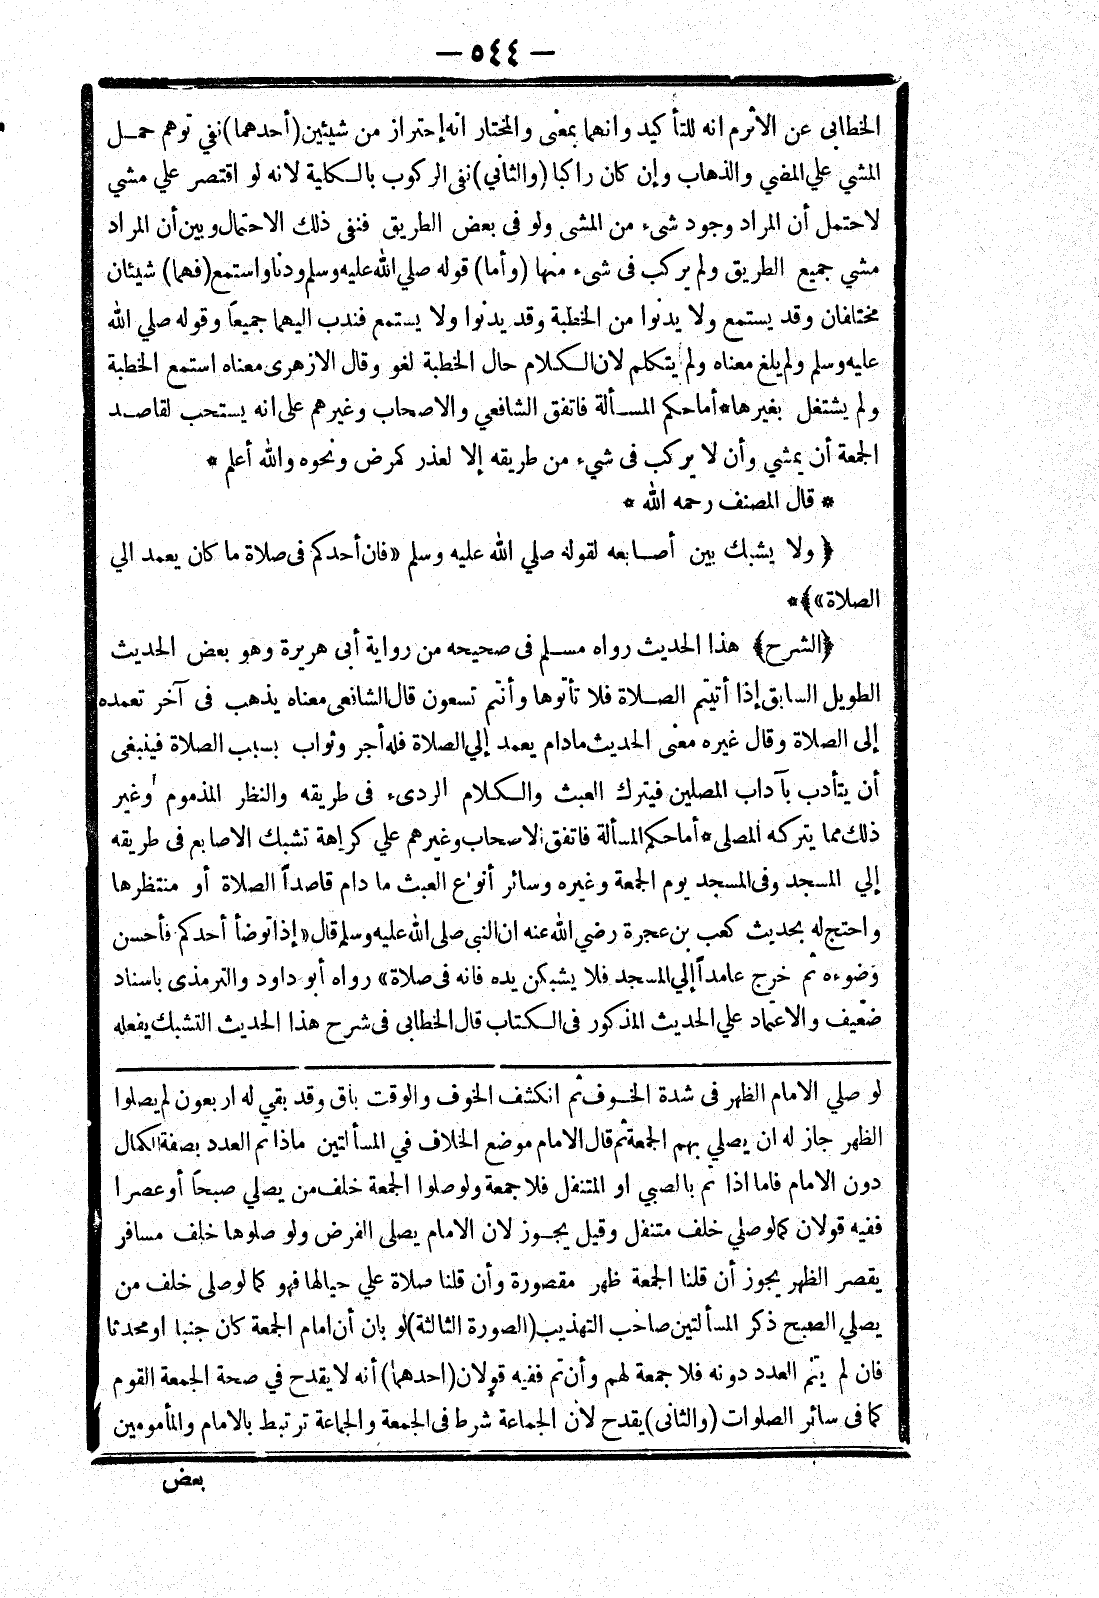 — ٥٤٤ —
الخطابى عن الاثرم انه للتأكيد وانهما بمعنى والمختار انه إحتراز من شيئين (أحدهما) نفي توهم حمل
المشي علي المضي والذهاب وإن كان راكبا (والثاني) نفى الركوب بالكلية لانه لو اقتصر علي مشي
لاحتمل أن المراد وجود شىء من المشى ولو فى بعض الطريق فنفى ذلك الاحتمال وبين أن المراد
مشي جميع الطريق ولم يركب فى شىء منها (وأما) قوله صلي الله عليه وسلم ودنا واستمع (فهما) شيئان
مختلفان وقد يستمع ولا يدنوا من الخطبة وقد يدنوا ولا يستمع فندب اليهما جميعاً وقوله صلي الله
عليه وسلم ولم يلغ معناه ولم يتكلم لان الكلام حال الخطبة لغو وقال الازهرى معناه استمع الخطبة
ولم يشتغل بغيرها * أما حكم المسألة فاتفق الشافعي والاصحاب وغيرهم على انه يستحب لقاصد
الجمعة أن يمشي وأن لا يركب فى شيء من طريقه إلا لعذر كمرض ونحوه والله أعلم *
* قال المصنف رحمه الله *
﴿ ولا يشبك بين أصابعه لقوله صلي الله عليه وسلم «فان أحدكم فى صلاة ما كان يعمد الي
الصلاة»﴾ *
﴿الشرح﴾ هذا الحديث رواه مسلم فى صحيحه من رواية أبى هريرة وهو بعض الحديث
الطويل السابق إذا أتيتم الصلاة فلا تأتوها وأنتم تسعون قال الشافعى معناه يذهب فى آخر تعمده
إلى الصلاة وقال غيره معنى الحديث مادام يعمد إلي الصلاة فله أجر وثواب بسبب الصلاة فينبغى
أن يتأدب بآداب المصلين فيترك العبث والكلام الردىء فى طريقه والنظر المذموم وغير
ذلك مما يتركه المصلى * أما حكم المسألة فاتفق الاصحاب وغيرهم علي كراهة تشبك الاصابع فى طريقه
إلي المسجد وفى المسجد يوم الجمعة وغيره وسائر أنواع العبث ما دام قاصداً الصلاة أو منتظرها
واحتج له بحديث كعب بن عجرة رضي الله عنه ان النبي صلى الله عليه وسلم قال «إذا توضأ أحدكم فأحسن
وضوءه ثم خرج عامداً إلي المسجد فلا يشبكن يده فانه فى صلاة» رواه أبو داود والترمذى باسناد
ضعيف والاعتماد علي الحديث المذكور فى الكتاب قال الخطابى فى شرح هذا الحديث التشبك يفعله
لو صلي الامام الظهر فى شدة الخوف ثم انكشف الخوف والوقت باق وقد بقي له اربعون لم يصلوا
الظهر جاز له ان يصلي بهم الجمعة ثم قال الامام موضع الخلاف في المسألتين ماذا تم العدد بصفة الكمال
دون الامام فاما اذا تم بالصبي او المتنفل فلا جمعة ولو صلوا الجمعة خلف من يصلي صبحاً أو عصرا
ففيه قولان كما لو صلي خلف متنفل وقيل يجوز لان الامام يصلى الفرض ولو صلوها خلف مسافر
يقصر الظهر يجوز أن قلنا الجمعة ظهر مقصورة وأن قلنا صلاة علي حيالها فهو كما لو صلى خلف من
يصلي الصبح ذكر المسألتين صاحب التهذيب (الصورة الثالثة) لو بان أن امام الجمعة كان جنبا او محدثا
فان لم يتم العدد دونه فلا جمعة لهم وأن تم ففيه قولان (احدهما) أنه لا يقدح في صحة الجمعة القوم
كما فى سائر الصلوات (والثانى) يقدح لأن الجماعة شرط فى الجمعة والجماعة ترتبط بالامام والمأمومين
بعض